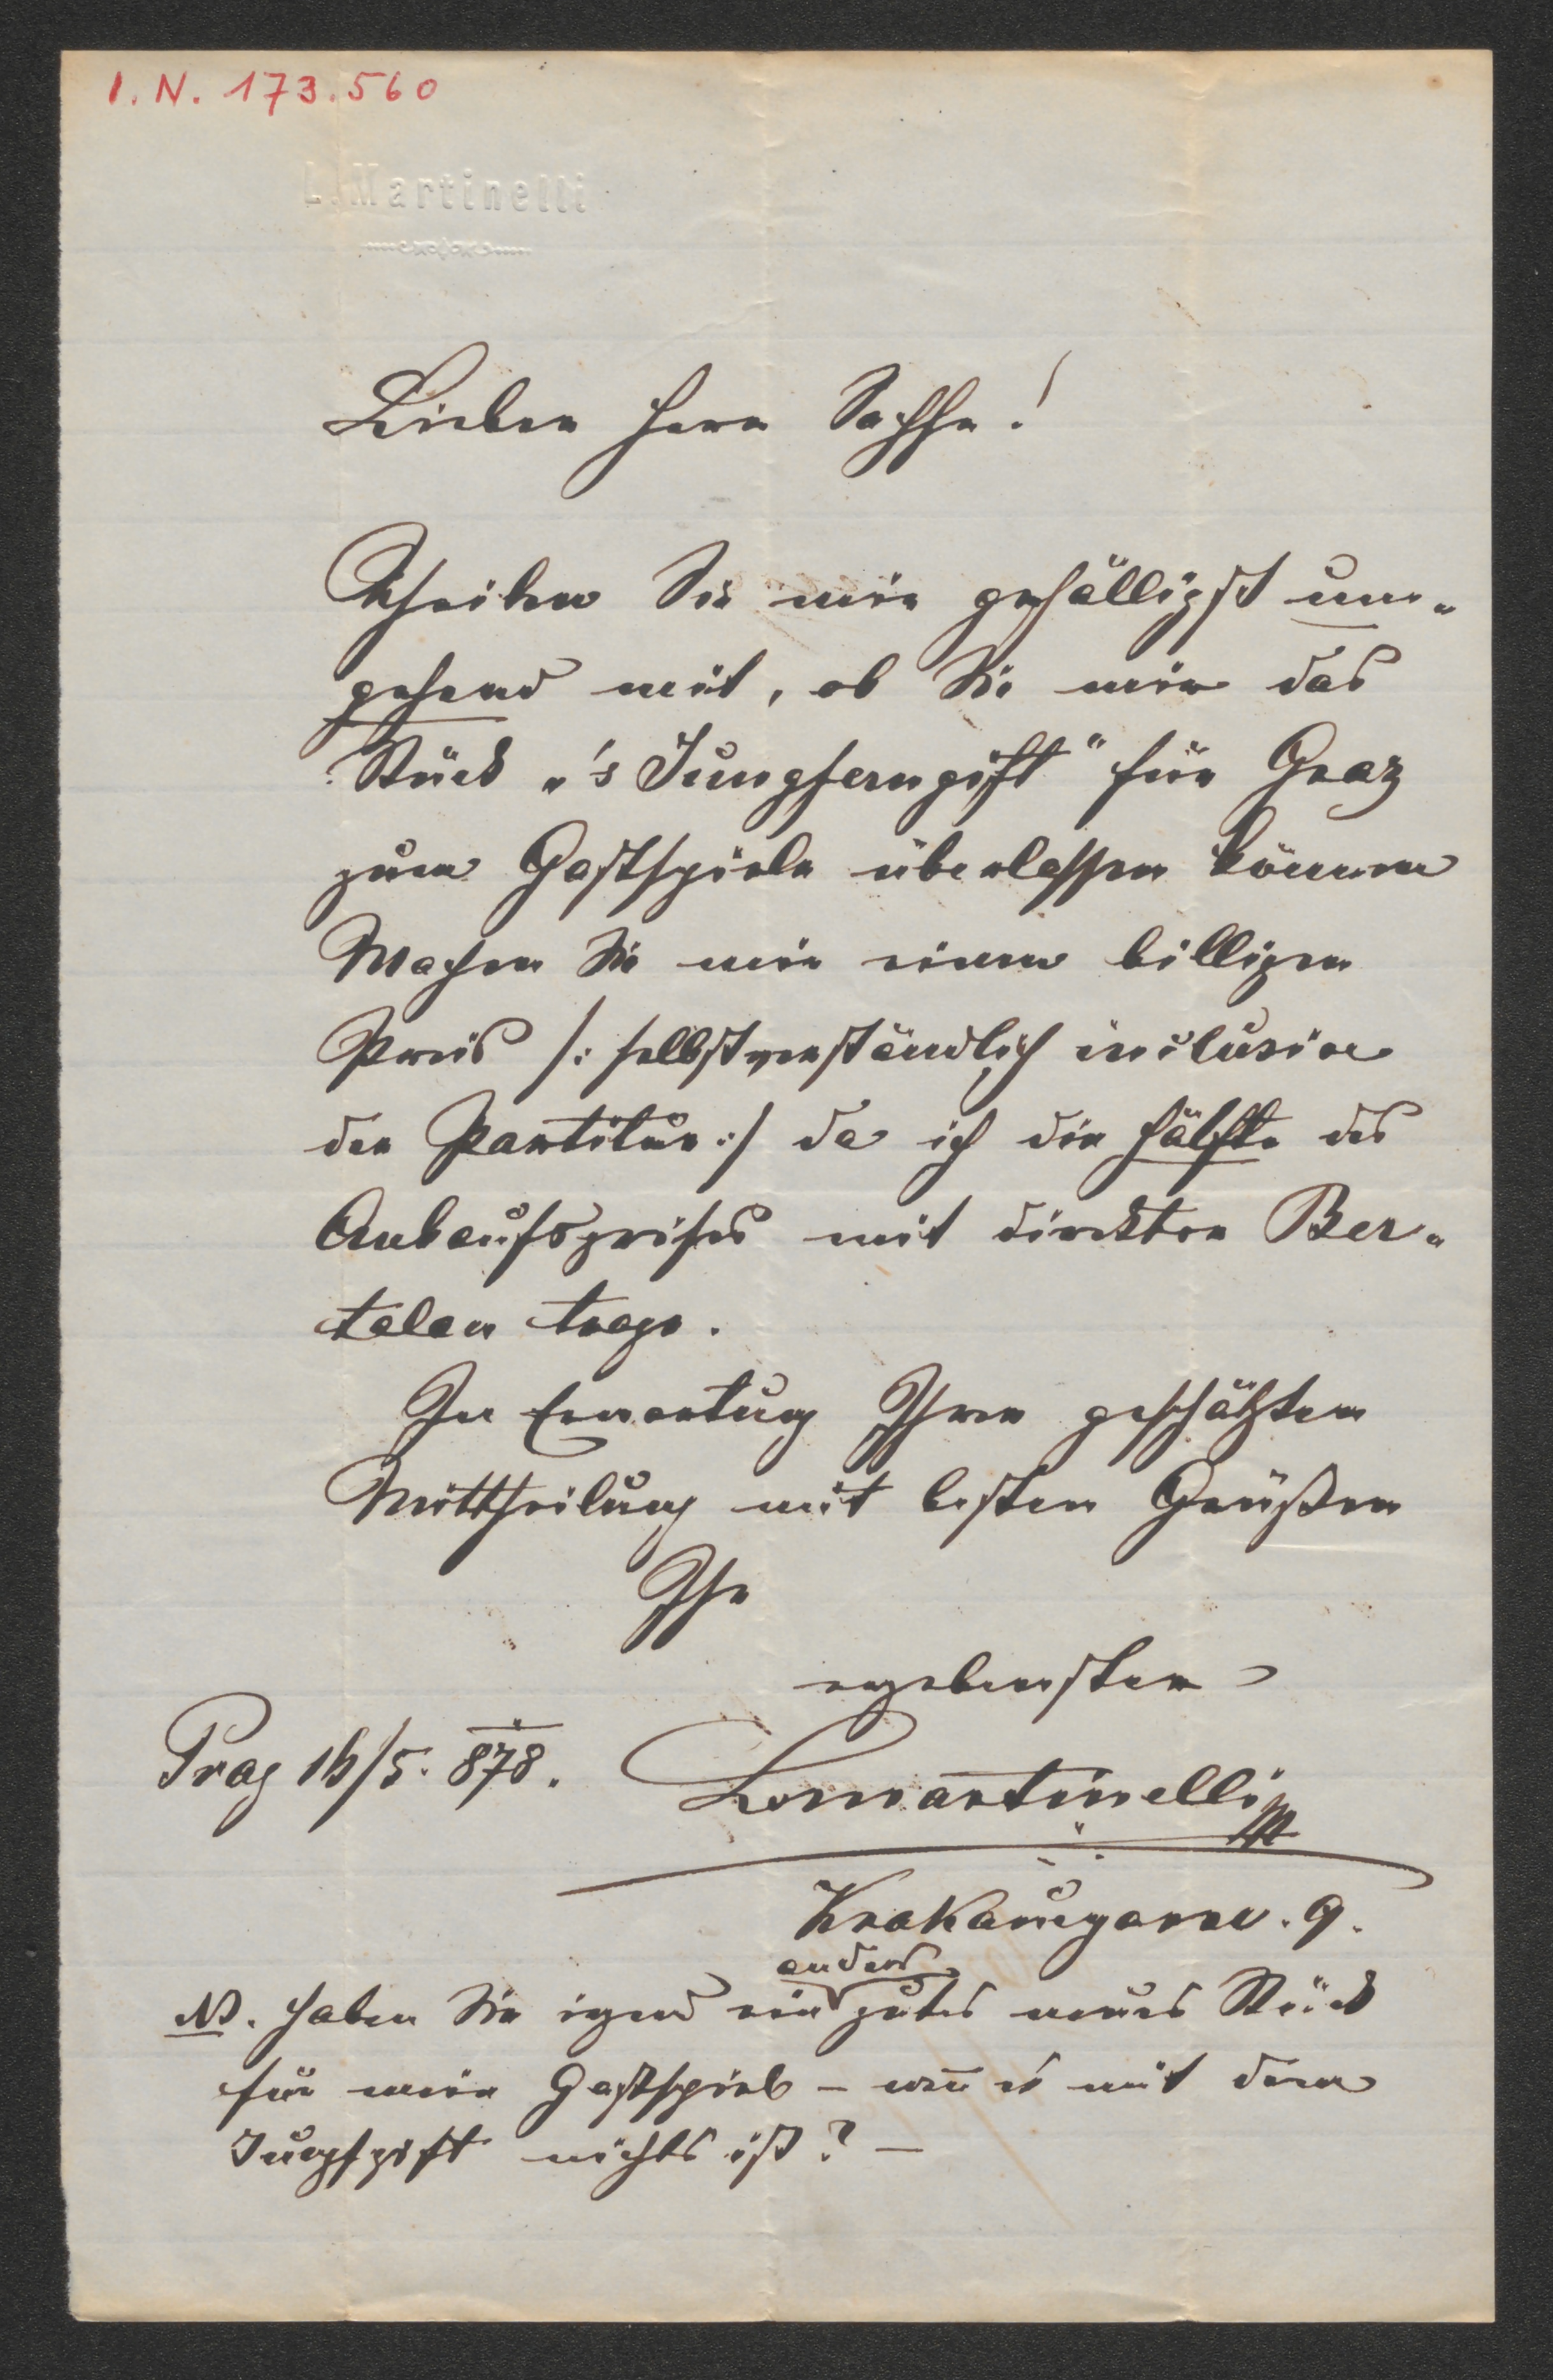 I. N. 173.560
L. Martinelli
Lieber Herr Sachse!
Theilen Sie mir gefälligst um-
gehend mit, ob Sie mir das
Stück „'s Jungferngift" für Graz
zum Gastspiele überlassen können
Machen Sie mir einen billigen
Preis /: selbstverständlich inclusive
der Partitur :/ da ich die Hälfte des
Ankaufspreises mit direktor Ber-
talan trage.
In Erwartung Ihrer geschätzten
Mittheilung mit besten Grüßen
Ihr
ergebenster
Prag 16/5. 878.
LMartinelli
Krakauergasse. 9.
anders
NB. Haben Sie irgend ein gutes neues Stück
für mein Gastspiel – wen̄ es mit dem
Jungfgift nichts ist? –